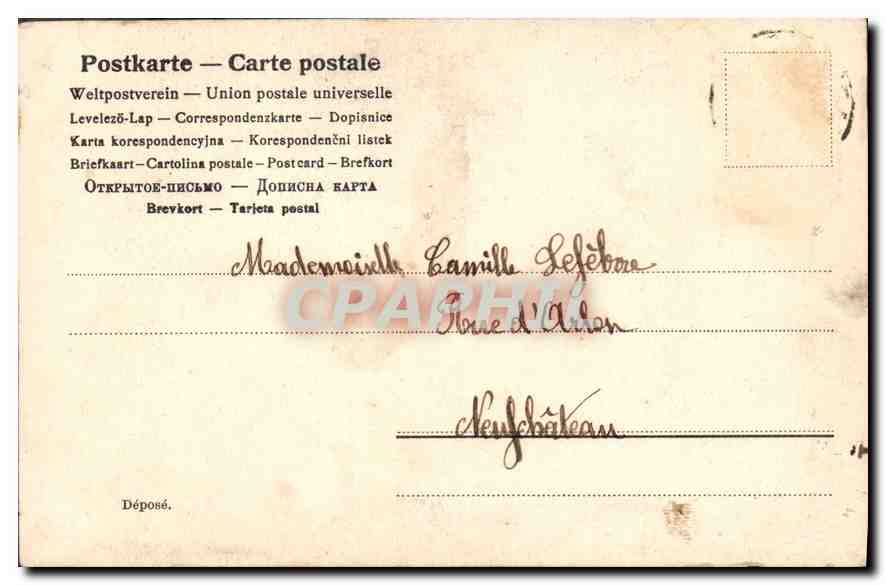 Postkarte — Carte postale
Weltpostverein — Union postale universelle
Levelező-Lap — Correspondenzkarte — Dopisnice
Karta korespondencyjna — Korespondenčni listek
Briefkaart — Cartolina postale — Post card — Brefkort
Открытое-письмо — Дописна карта
Brevkort — Tarjeta postal
Mademoiselle Camille Lefèbvre
CPAPHIL
Rue d'Arlon
Neufchâteau
Déposé.